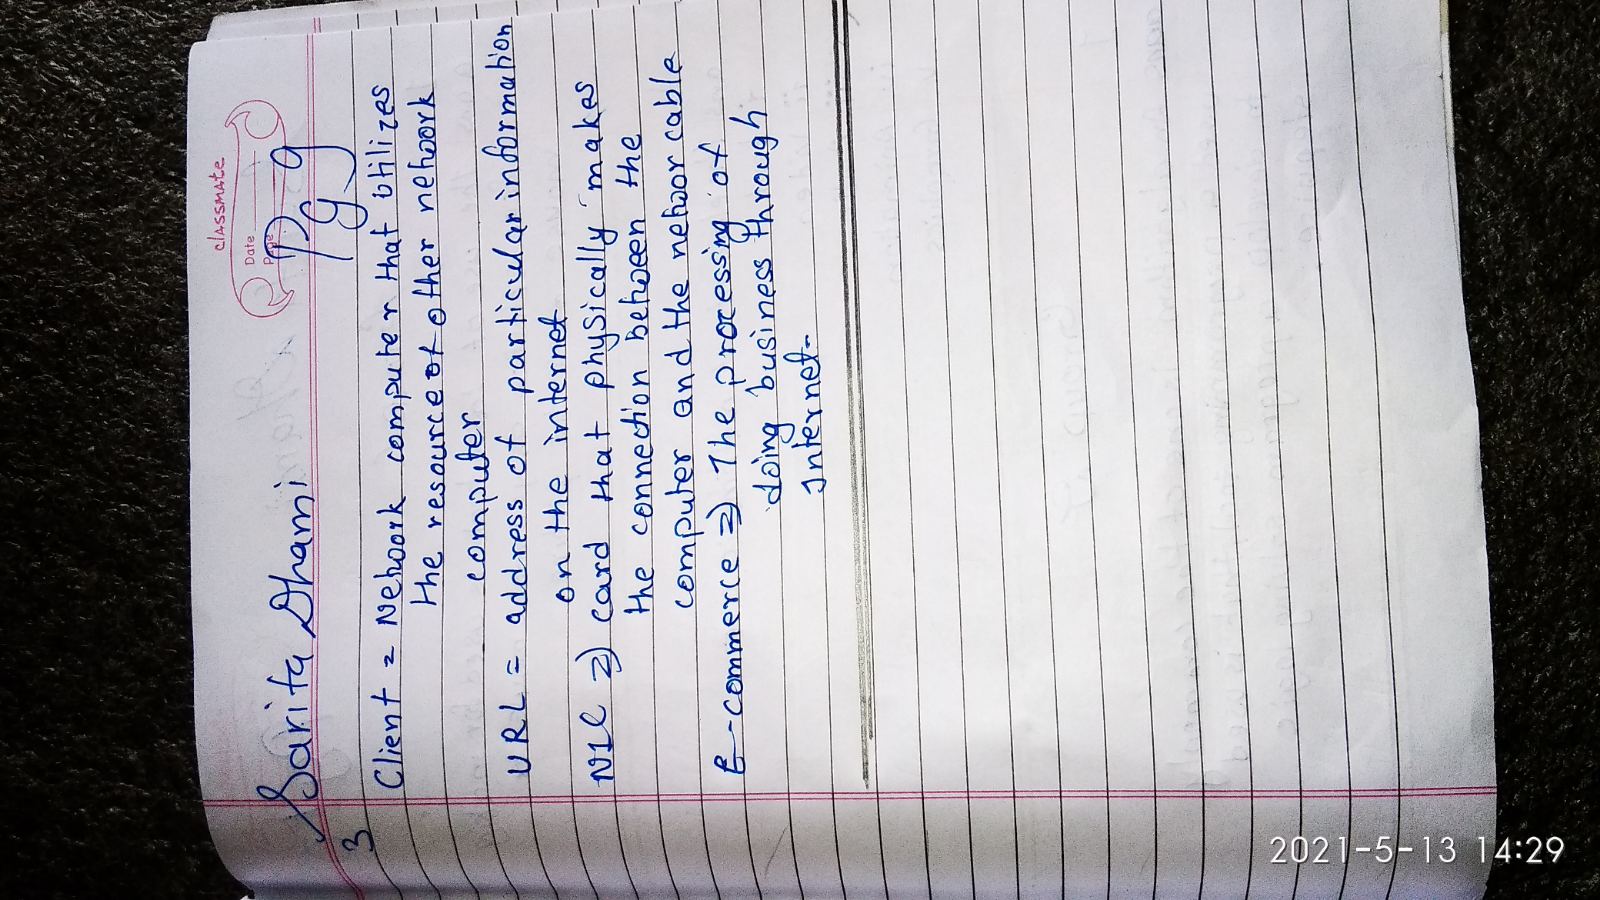 classmate
Date
Page
Pg 9
Sarita Dhami
3
Client = Network computer that utilizes
the resource of other network
computer
URL = address of particular information
on the internet
NIC => card that physically makes
the connection between the
computer and the networ cable
E-commerce => The processing of
doing business through
Internet.
2021-5-13 14:29